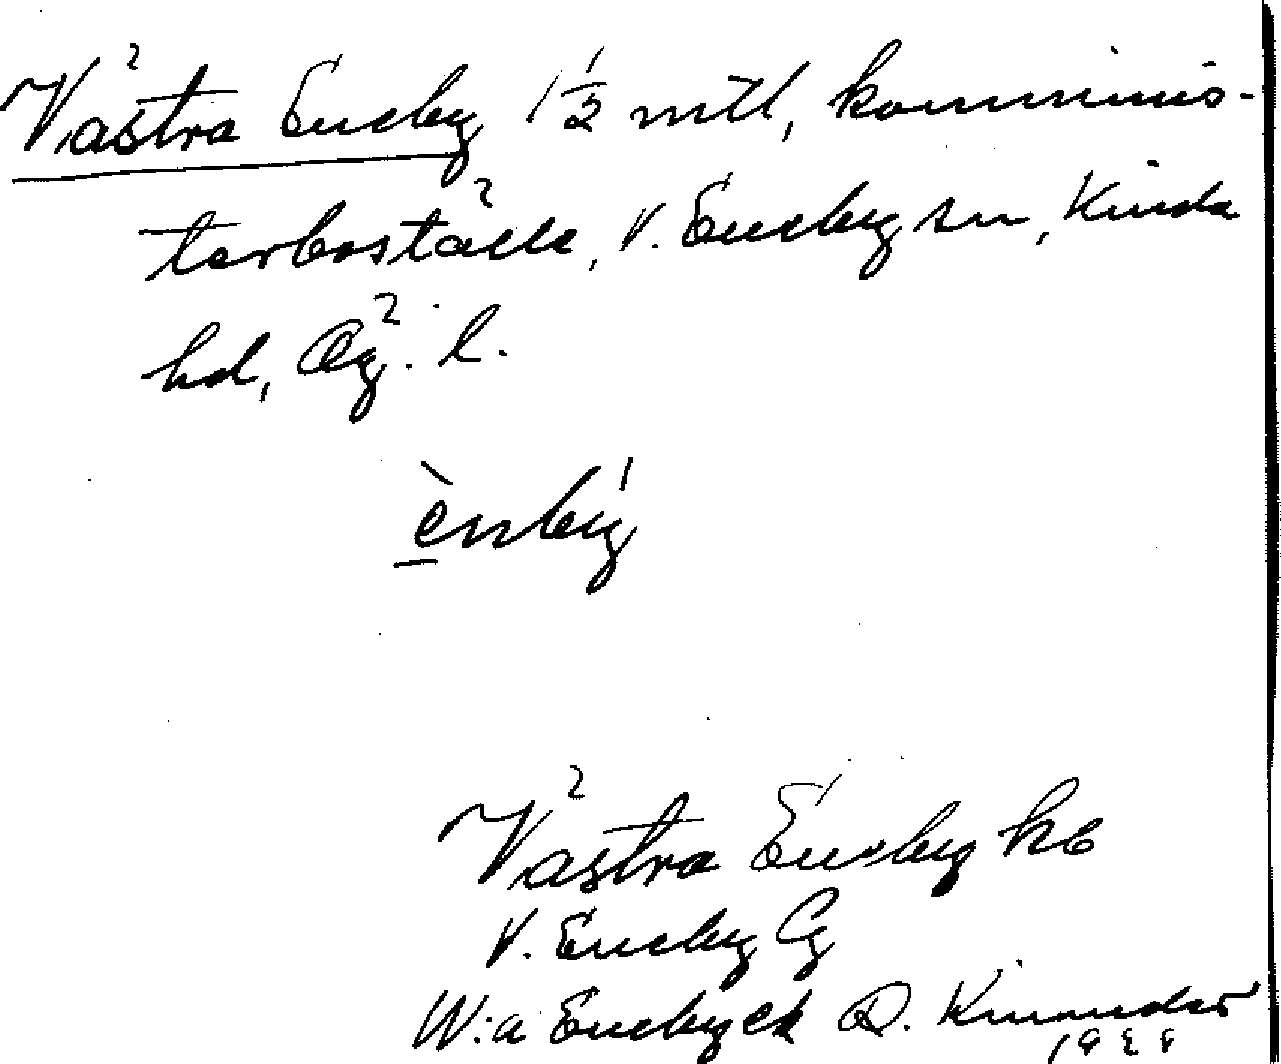 Västra Eneby 1 1/2 mtl, kominis-
terboställe, V. Eneby sn, Kinda
hd, Ög. l.
ènbý
Västra Eneby kb
V. Eneby Gg
W:a Eneby ek